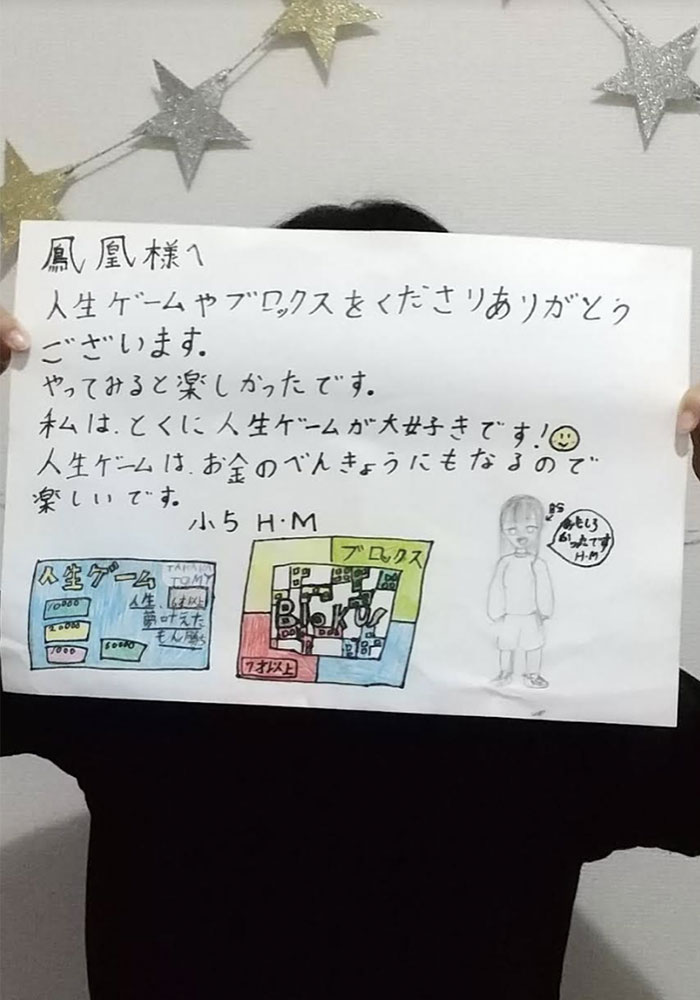 鳳凰様へ
人生ゲームやブロックスをくださりありがとう
ございます。
やってみると楽しかったです。
私は、とくに人生ゲームが大好きです!
人生ゲームは、お金のべんきょうにもなるので
楽しいです。
小5 H・M
人生ゲーム
TAKARA
TOMY
人生、
6才以上
夢叶えた
もん勝ち
10000
20000
1000
50000
ブロックス
Blokus
7才以上
おもしろ
かったです
H・M